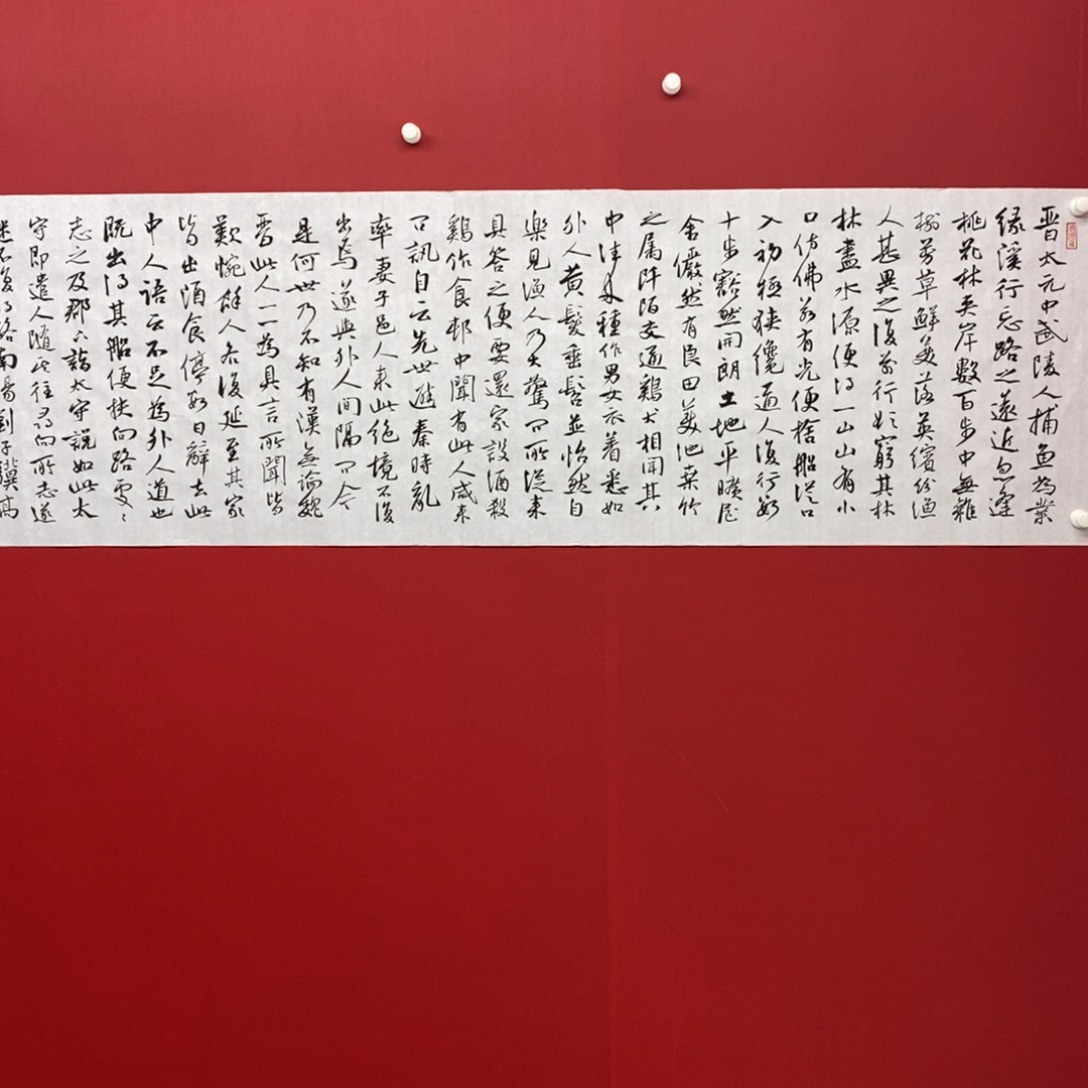 晋太元中武陵人捕鱼为業
缘溪行忘路之遠近忽逢
桃花林夹岸數百步中無雜
樹芳草鮮美落英缤纷渔
人甚異之復前行欲窮其林
林盡水源便得一山山有小
口仿佛若有光便捨船從口
入初極狹纔通人復行數
十步豁然開朗土地平曠屋
舍儼然有良田美池桑竹
之属阡陌交通鷄犬相聞其
中往來種作男女衣着悉如
外人黄髮垂髫並怡然自
樂見渔人乃大驚问所從來
具答之便要還家設酒殺
鷄作食邨中聞有此人咸來
问訊自云先世避秦時亂
率妻子邑人來此绝境不復
出焉遂與外人间隔问今
是何世乃不知有漢無論魏
晋此人一一為具言所聞皆
歎惋餘人各復延至其家
皆出酒食停數日辭去此
中人語云不足為外人道也
既出得其船便扶向路處々
志之及郡下詣太守説如此太
守即遣人隨其往尋向所志遂
迷不復得路南陽劉子驥高